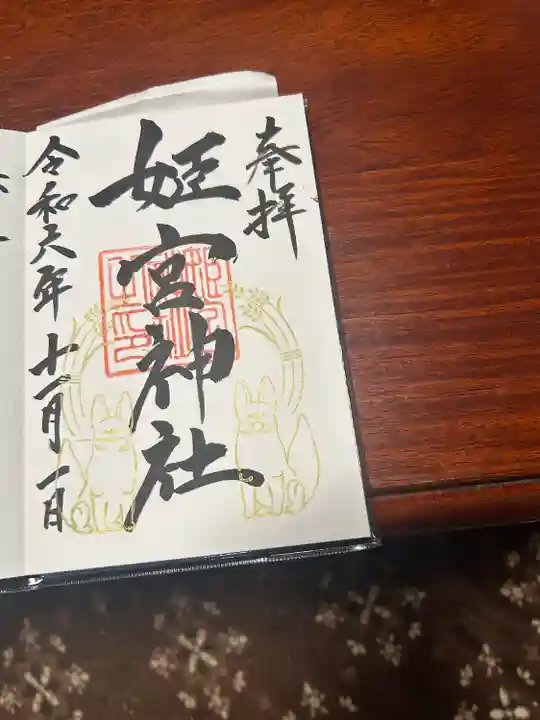 奉拝
姫宮神社
令和元年十一月一日